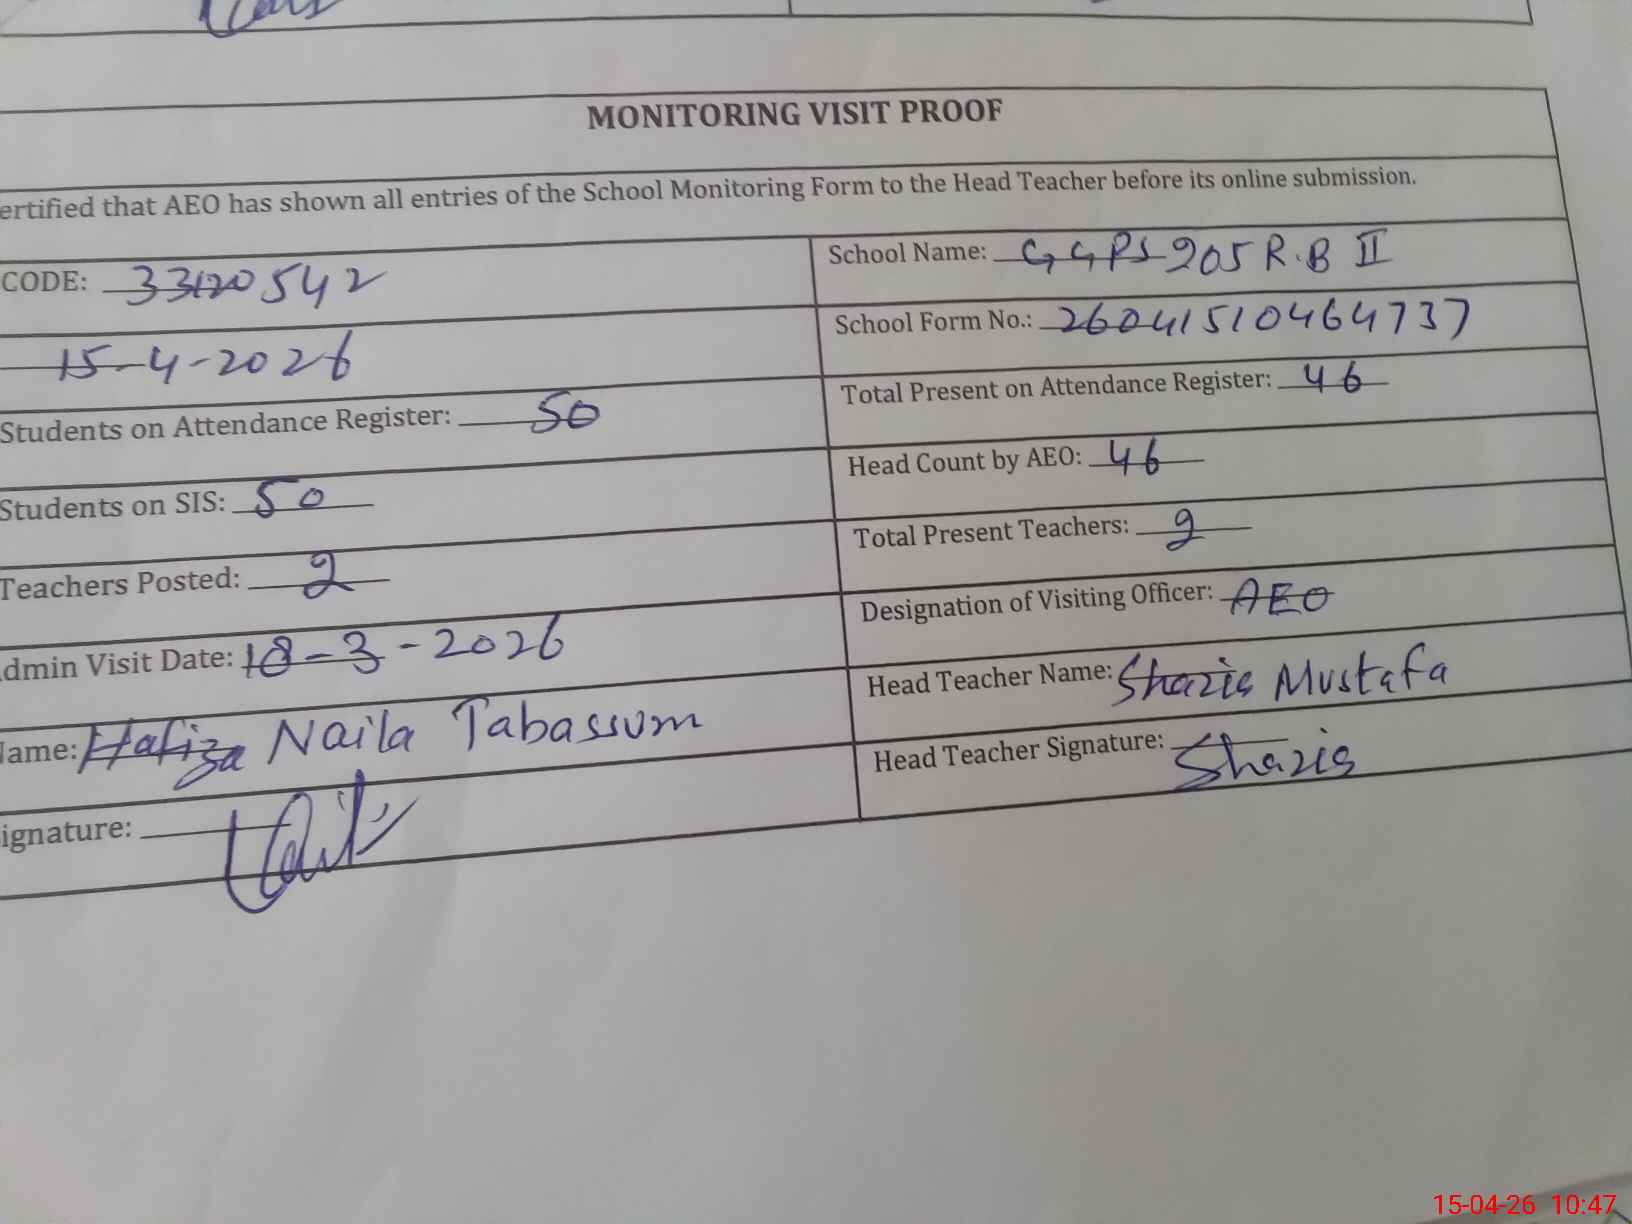 MONITORING VISIT PROOF
ertified that AEO has shown all entries of the School Monitoring Form to the Head Teacher before its online submission.
CODE: 33120542
School Name: GGPS 205 R.B II
15-4-2026
School Form No.: 26041510464737
Students on Attendance Register: 50
Total Present on Attendance Register: 46
Students on SIS: 50
Head Count by AEO: 46
Teachers Posted: 2
Total Present Teachers: 2
dmin Visit Date: 18-3-2026
Designation of Visiting Officer: AEO
ame: Hafiza Naila Tabassum
Head Teacher Name: Shazia Mustafa
ignature:
Head Teacher Signature: Shazia
15-04-26 10:47